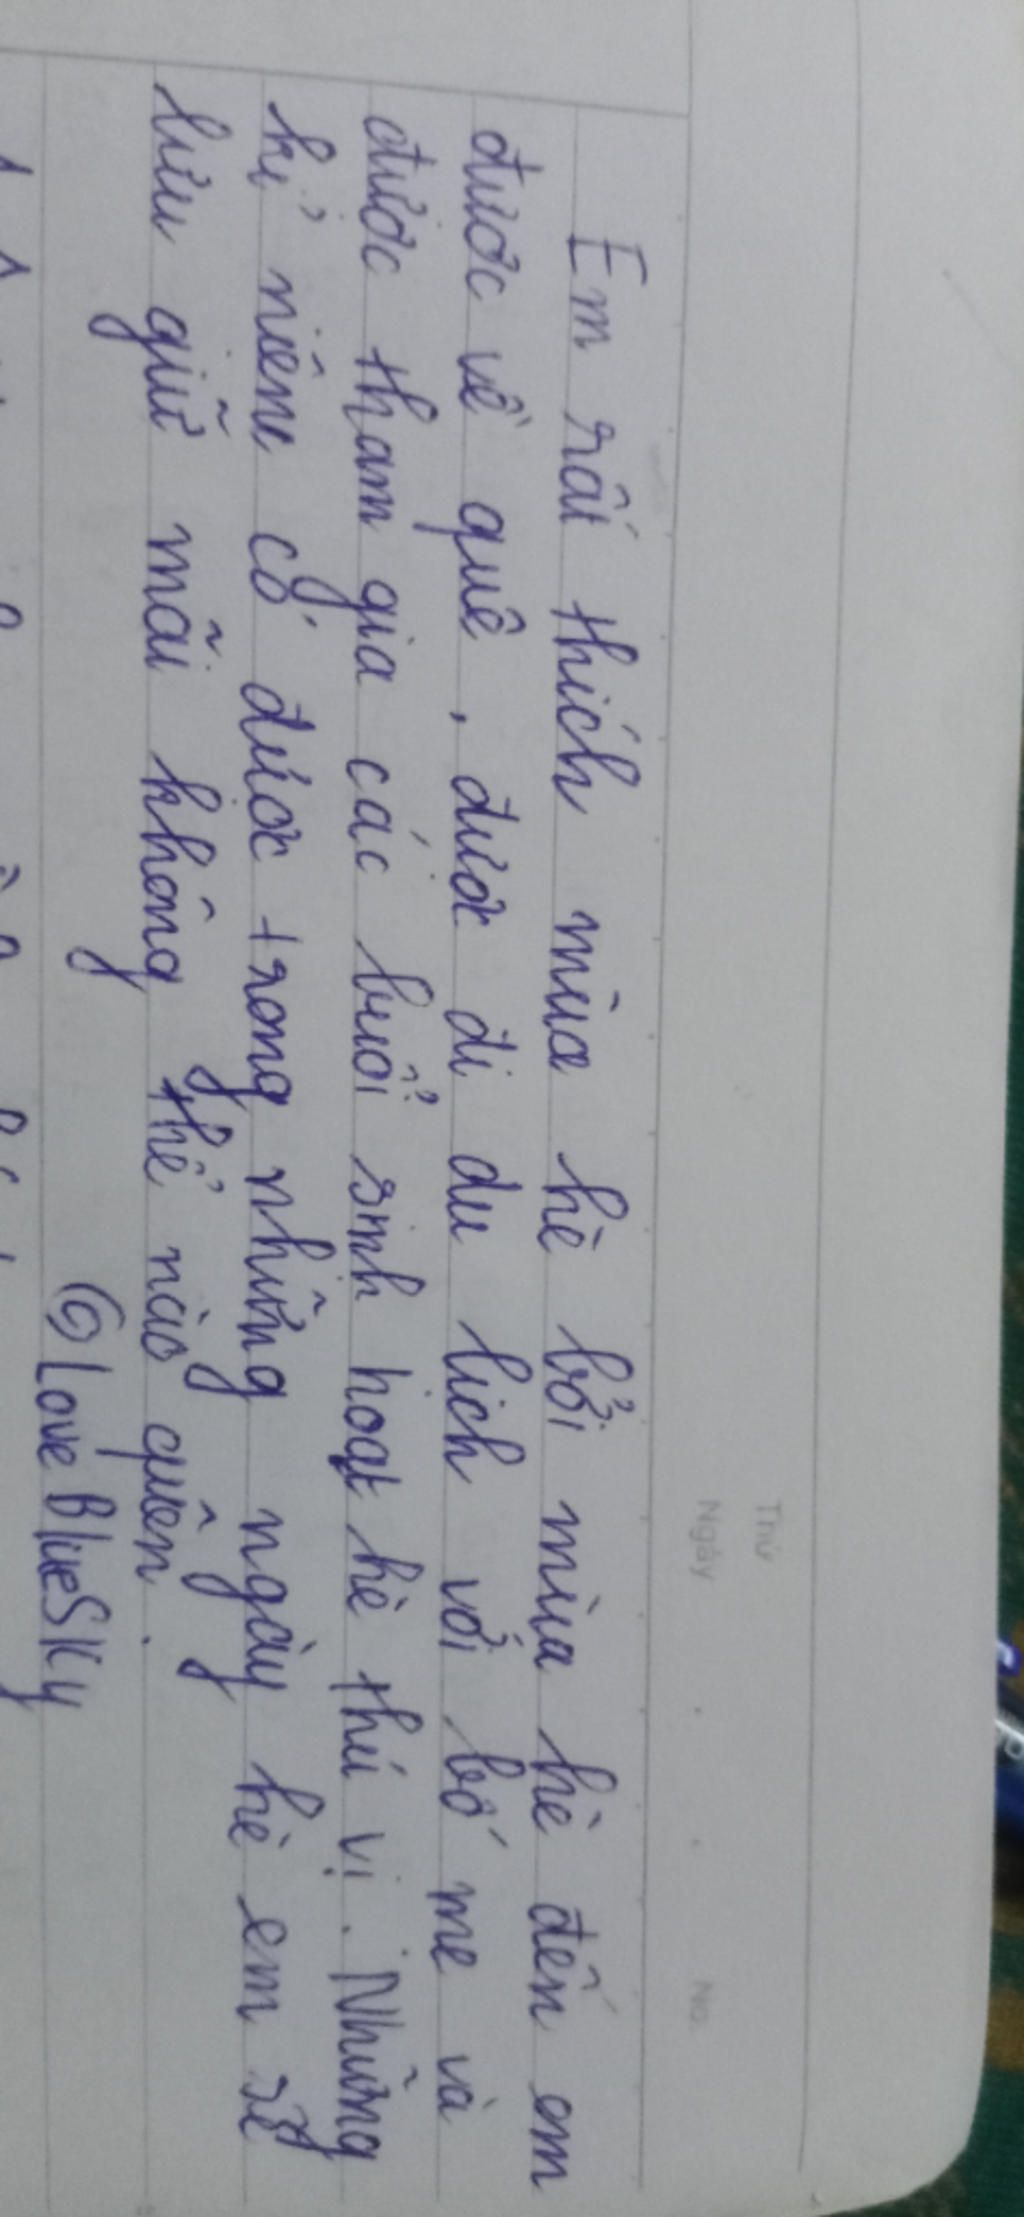 Thứ
Ngày
No.
Em rất thích mùa hè bởi mùa hè đến em
được về quê, được đi du lịch với bố mẹ và
được tham gia các buổi sinh hoạt hè thú vị. Những
kỉ niệm có được trong những ngày hè em sẽ
lưu giữ mãi không thể nào quên.
@LoveBlueSky